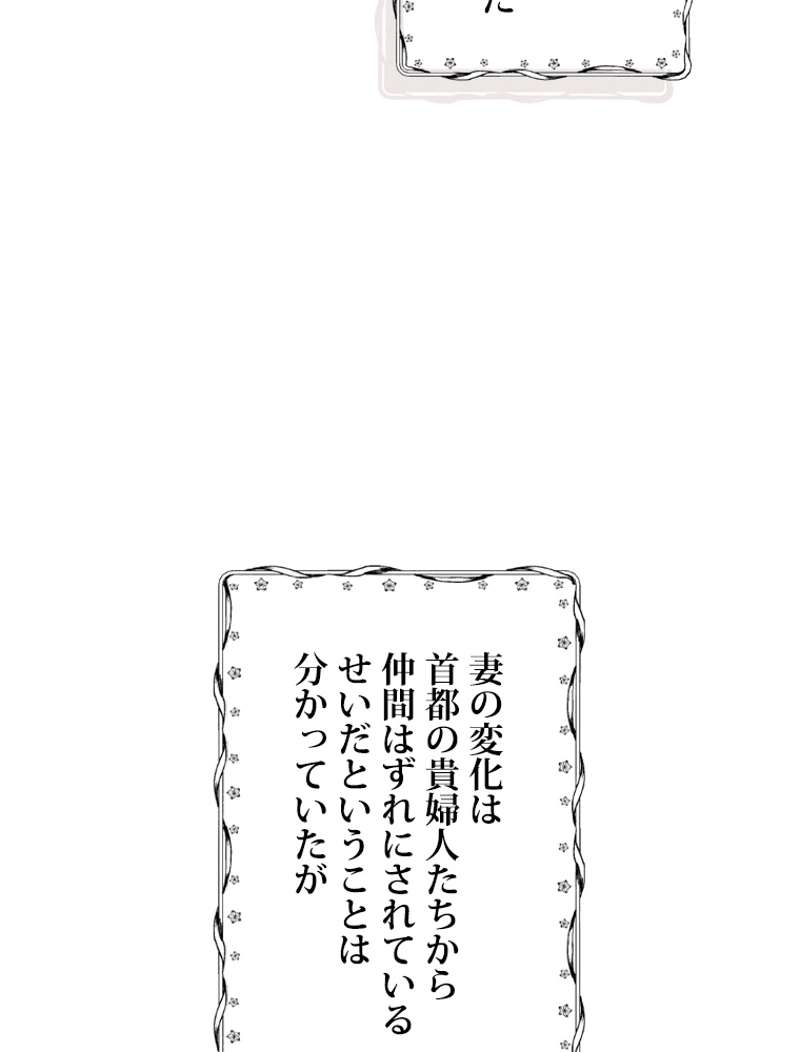 た
妻の変化は
首都の貴婦人たちから
仲間はずれにされている
せいだということは
分かっていたが